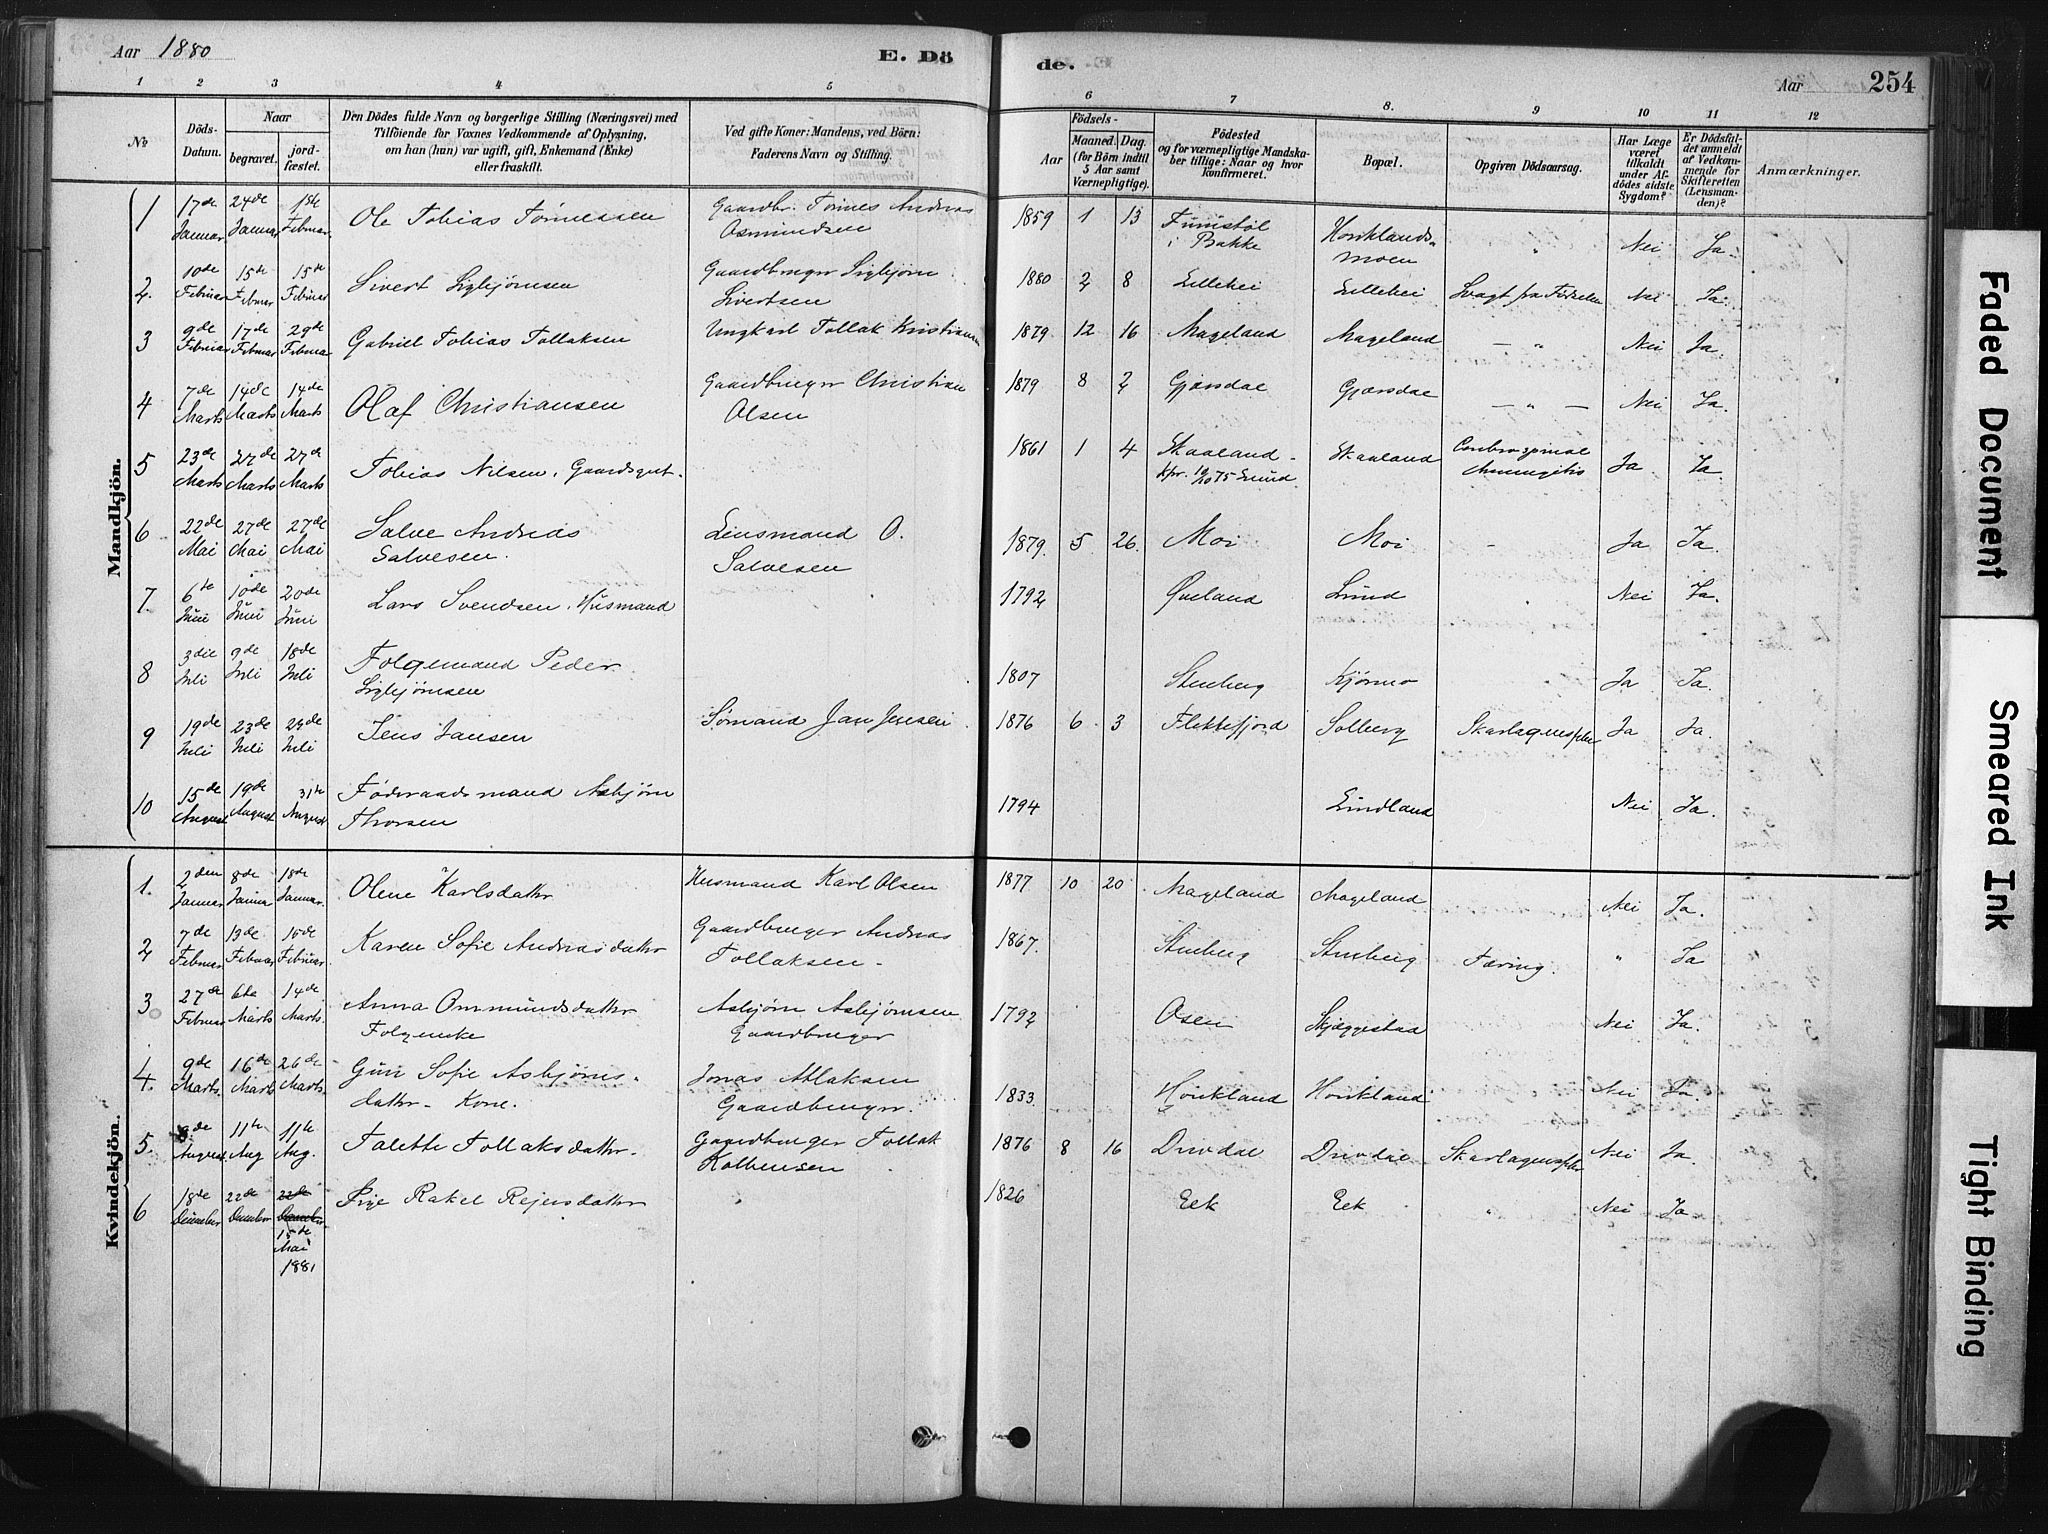 Aar 1880 E. Dö de. Aar 254
1 2 3 4 5 6 7 8. 9 10 11 12
№ Döds-Datum. Naar begravet. jordfæstet. Den Dödes fulde Navn og borgerlige Stilling (Næringsvei) med Tilföiende for Voxnes Vedkommende af Oplysning, om han (hun) var ugift, gift, Enkemand (Enke) eller fraskilt. Ved gifte Koner: Mandens, ved Börn: Faderens Navn og Stilling. Födsels- Aar Maaned. Dag. (for Börn indtil 5 Aar samt Værnepligtige). Födested og for værnepligtige Mandskaber tillige: Naar og hvor konfirmeret. Bopæl. Opgiven Dödsaarsag. Har Læge været tilkaldt under Afdödes sidste Sygdom? Er Dödsfaldet anmeldt af Vedkommende for Skifteretten (Lensmanden)? Anmærkninger.
Mandkjön.
1 17de Januar 24de Januar Februar Ole Tobias Tønnessen Gaardbr. Tønnes Andreas Osmundsen 1859 1 13 i Bakke moen " Nei Ja.
2. 10de Februar 15de Februar 15de Februar Sivert Sigbjørnsen Gaardbruger Sigbjørn Sivertsen 1880 2 8 Lillehei Lillehei Svagt fra Fødselen Nei Ja.
3 9de Februar 17de Februar 29de Februar Gabriel Tobias Tollaksen Ungkarl Tollak Kristiansen 1879 12 16 Mageland Mageland — " Nei Ja.
4 7de Marts 14de Marts 14de Marts Olaf Christiansen Gaardbruger Christian Olsen 1879 8 2 Gjersdal Gjersdal — " — Nei Ja.
5 23de Marts 27de Marts 27de Marts Tobias Nilsen, Gaardsgut. 1861 1 4 Skaaland. Skaaland Ja Ja.
6 22de Mai 27de Mai 27de Mai Salve Andreas Salvesen. Lensmand O. Salvesen 1879. 5 26. Moi Moi - Ja Ja.
7. 6te Juni 10de Juni 20de Juni Lars Svendsen, Husmand 1792 Qveland Lund Nei Ja.
8 3die Juli 9de Juli 18de Juli Folgemand Peder Sigbjørnsen 1807 Stenberg Kjørmo Ja Ja.
9 19de Juli 23de Juli Juli Jens Jansen Sømand Jan Jensen 1876 6 3 Flekkefjord Solberg Skarlagensfeber Ja Ja.
10 15de August 19de August 31te August Føderaadsmand Asbjørn Thorsen 1794 Lindland Nei Ja.
Kvindekjön.
1. 2den Januar 8de Januar 18de Januar. Olene Karlsdatter Husmand Karl Olsen 1877 10 20 Mageland Mageland Nei Ja.
2 7de Februar 13de Februar 15de Februar Karen Sofie Andreasdatter Gaardbruger Andreas Tollaksen. 1867. Stenberg Stenberg Tæring. " Ja
3 27de Februar 6te Marts 14de Marts. Anna Ommundsdatter Folgeenke Asbjørn Asbjørnsen Gaardbruger 1792 Osen Skjeggestad Nei Ja.
4. 9de Marts. 16de Marts 26de Marts. Guri Sofie Asbjørnsdatter. Kone. Jonas Atlaksen Gaardbruger. 1833. Nei Ja.
5. August. 11te Aug 11te Aug. Talette Tollaksdatter. Gaardbruger Tollak Kolbensen 1876 8 16 Drivdal Drivdal Skarlagensfeber Nei Ja.
6 18de December 22de December 22de December 15de Mai 1881 Rakel Rejersdatter 1826 Eek Eek " Nei Ja.
Faded Document
Smeared Ink
Tight Binding